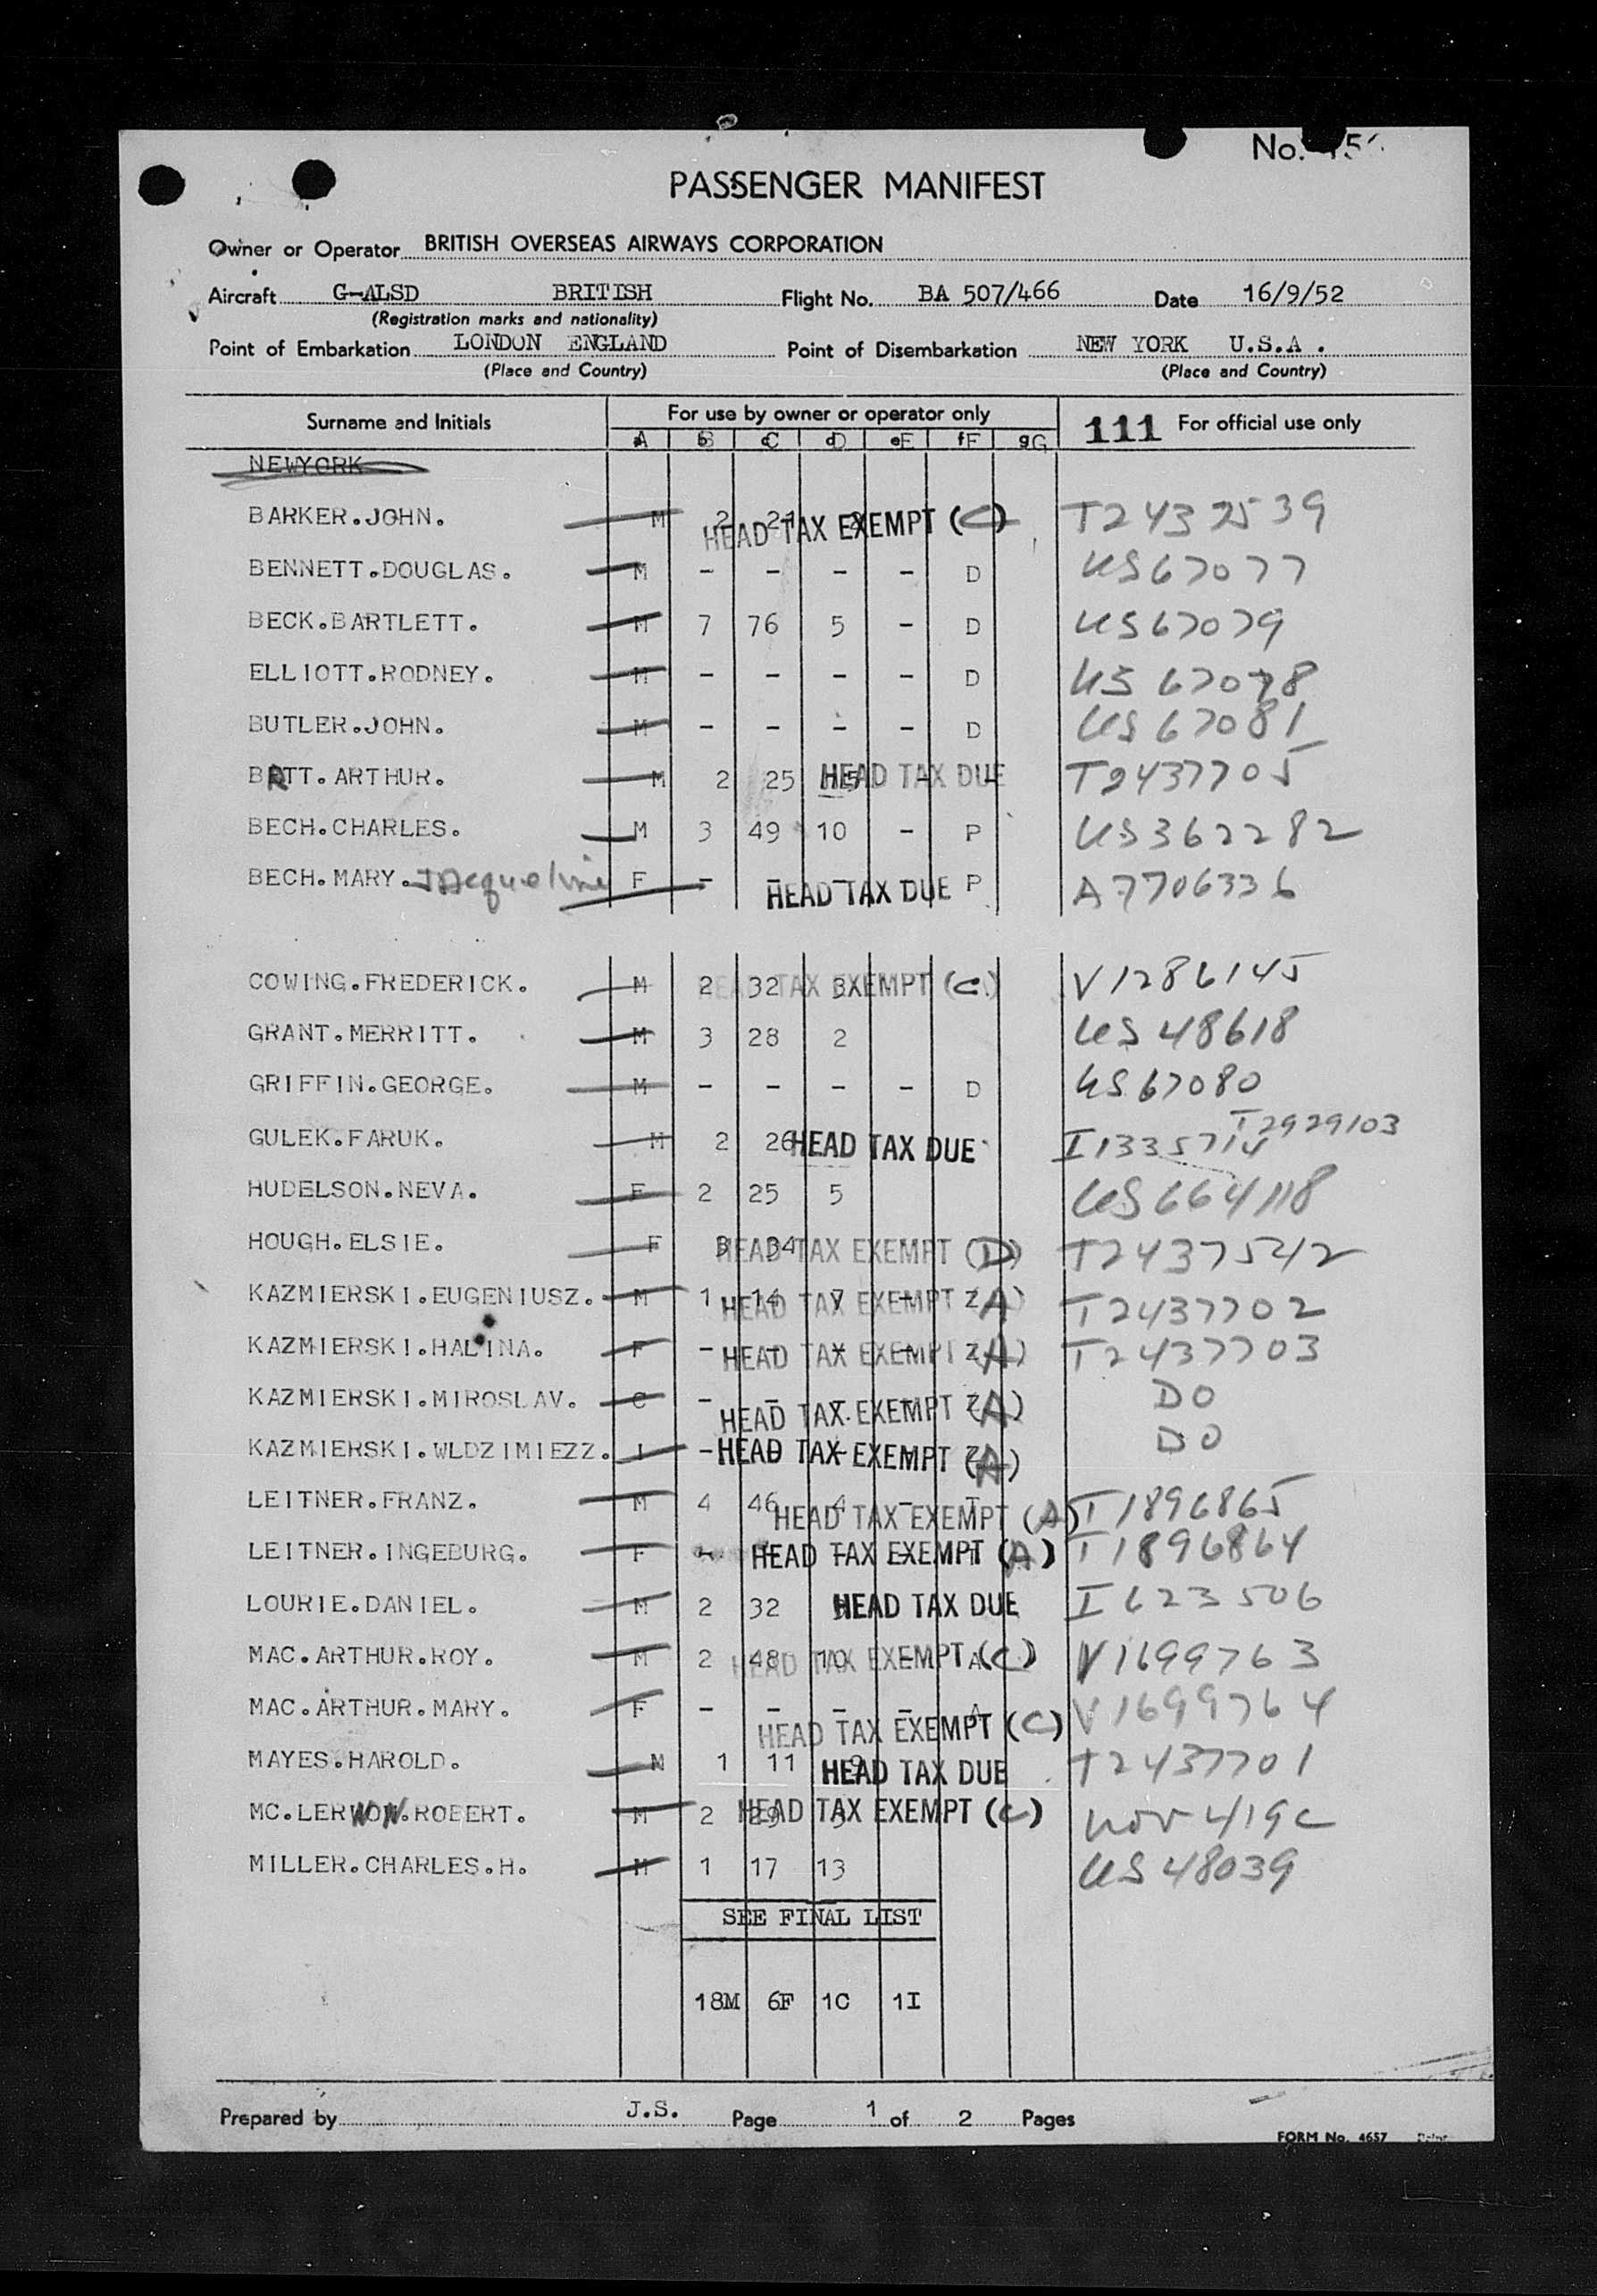 No.
PASSENGER MANIFEST
Owner or Operator BRITISH OVERSEAS AIRWAYS CORPORATION
Aircraft G-ALSD BRITISH Flight No. BA 507/466 Date 16/9/52
(Registration marks and nationality)
Point of Embarkation LONDON ENGLAND Point of Disembarkation NEW YORK U.S.A.
(Place and Country) (Place and Country)
Surname and Initials For use by owner or operator only 111 For official use only
A B C D E F G
NEWYORK
BARKER.JOHN. M 2 21 HEAD TAX EXEMPT (C) T2432539
BENNETT.DOUGLAS. M - - - - D US67077
BECK.BARTLETT. M 7 76 5 - D US67079
ELLIOTT.RODNEY. M - - - - D US67078
BUTLER.JOHN. M - - - - D US67081
BRTT.ARTHUR. M 2 25 HEAD TAX DUE T2437705
BECH.CHARLES. M 3 49 10 - P US362282
BECH.MARY. Jacqueline F - - - - P HEAD TAX DUE A7706336
COWING.FREDERICK. M 2 32 HEAD TAX EXEMPT (C) V1286145
GRANT.MERRITT. M 3 28 2 US48618
GRIFFIN.GEORGE. M - - - - D US67080
GULEK.FARUK. M 2 26 HEAD TAX DUE I1335714 T2929103
HUDELSON.NEVA. F 2 25 5 US664118
HOUGH.ELSIE. F 3 34 HEAD TAX EXEMPT (D) T2437542
KAZMIERSKI.EUGENIUSZ. M 1 14 7 - Z HEAD TAX EXEMPT (A) T2437702
KAZMIERSKI.HALINA. F - - - - Z HEAD TAX EXEMPT (A) T2437703
KAZMIERSKI.MIROSLAV. C - - - - Z HEAD TAX EXEMPT (A) DO
KAZMIERSKI.WLDZIMIEZZ. I - - - - Z HEAD TAX EXEMPT (A) DO
LEITNER.FRANZ. M 4 46 4 - T HEAD TAX EXEMPT (A) T1896865
LEITNER.INGEBURG. F - - - - T HEAD TAX EXEMPT (A) T1896864
LOURIE.DANIEL. M 2 32 HEAD TAX DUE I623506
MAC.ARTHUR.ROY. M 2 48 10 - A HEAD TAX EXEMPT (C) V1699763
MAC.ARTHUR.MARY. F - - - - A HEAD TAX EXEMPT (C) V1699764
MAYES.HAROLD. M 1 11 9 HEAD TAX DUE T2437701
MC.LERNON.ROBERT. M 2 29 HEAD TAX EXEMPT (C)
MILLER.CHARLES.H. M 1 17 13 US48039
SEE FINAL LIST
18M 6F 1C 1I
Prepared by J.S. Page 1 of 2 Pages
FORM No. 4657